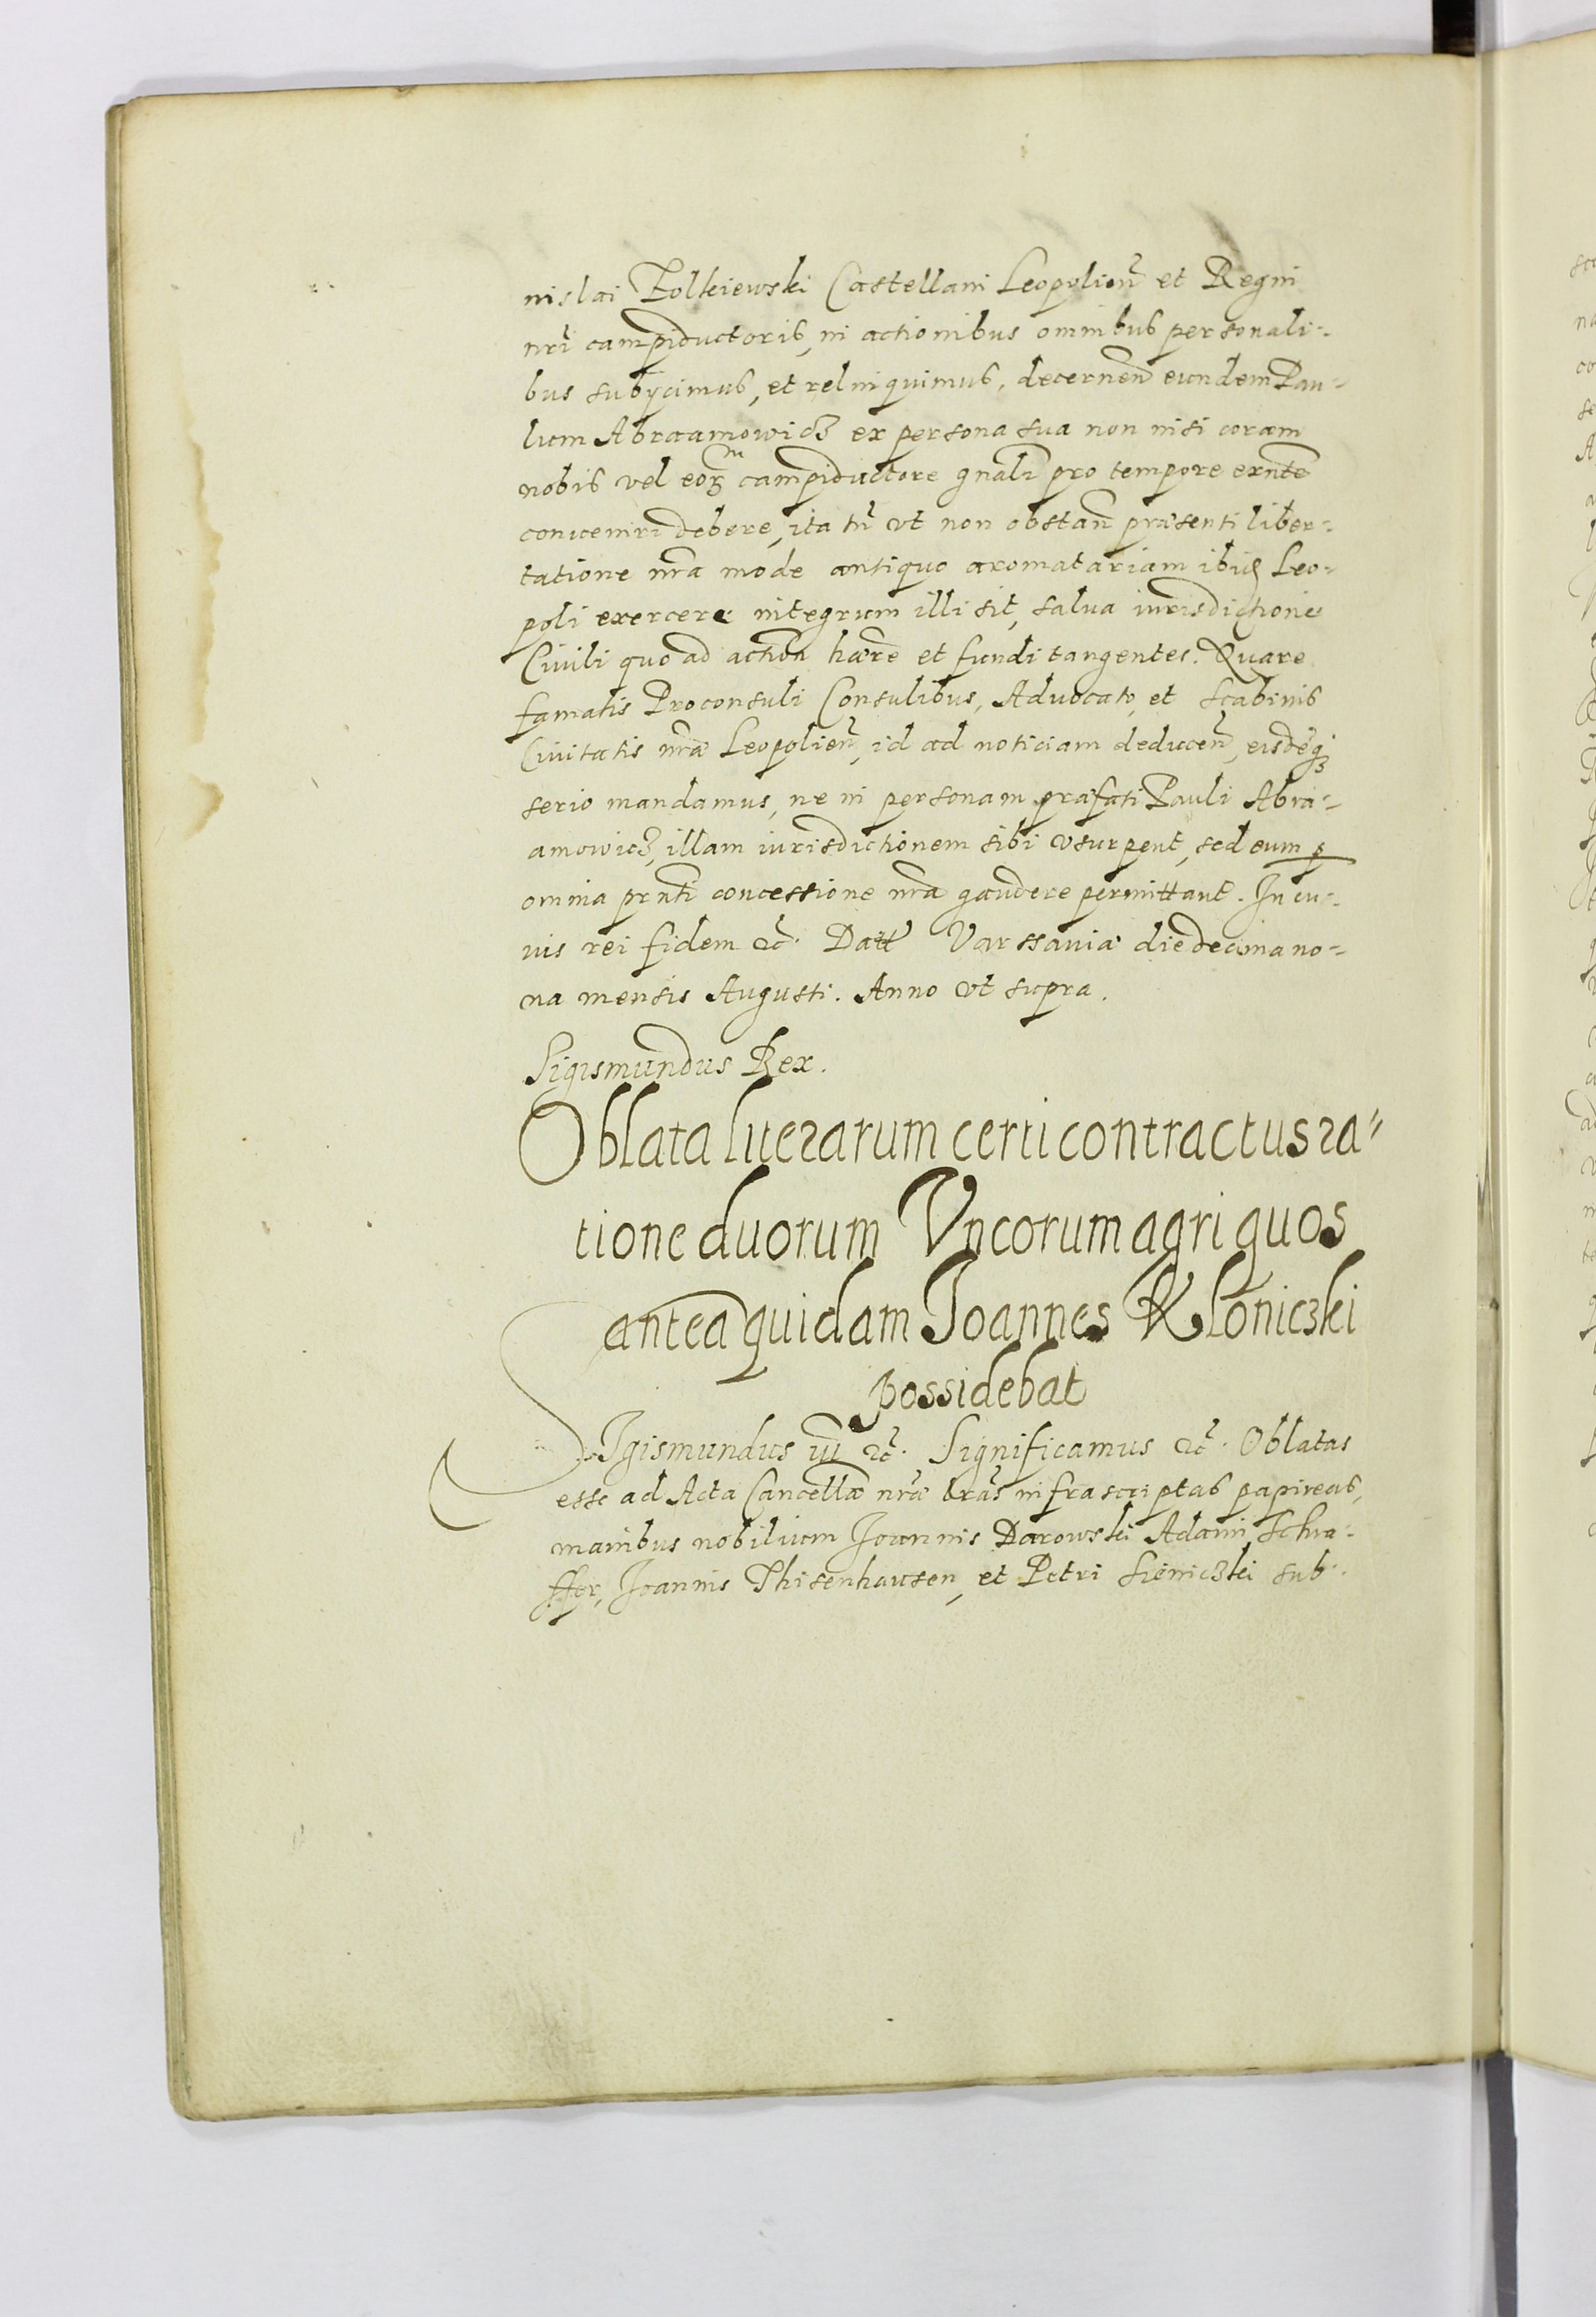 nislai Zolkiewski Castellani Leopolien̄ et Regni
nr̄i campiductoris, in actionibus omnibus personali-
bus subÿcimus, et relinquimus, decernen̄ eundem Pau-
lum Abraamowicz ex persona sua non nisi coram
nobis vel eor̄ campiductore gnāli pro tempore exn̄te
conveniri debere, ita tn̄ vt non obstan̄ præsenti liber-
tatione nr̄a mode antiquo aromatariam ibid Leo-
poli exercere integrum illi sit, salua iurisdictione
Ciuili quo ad action̄ hær̄e et fundi tangentes. Quare
famatis Proconsuli Consulibus, Aduocato, et Scabinis
Ciuitatis nr̄æ Leopolien̄, id ad noticiam deducen̄, eisdēq3
serio mandamus, ne in personam præfati Pauli Abra-
amowicz, illam iurisdictionem sibi vsurpent, sed eum p̱
omnia pn̄ti concessione nr̄a gaudere permittant. In cu-
ius rei fidem &c̄. Datt Varssaviæ die decima no-
na mensis Augusti. Anno vt supra.
Sigismundus Rex.
Oblata literarum certi contractus ra-
tione duorum Vncorum agri quos
antea quidam Joannes Kloniczki
possidebat
SIgismundus iij &c̄. Significamus &c̄. Oblatas
esse ad Acta Cancellæ nr̄æ lr̄as infrascriptas papireas,
manibus nobilium Joannis Darowski Adami Schra-
ffer, Joannis Thisenhausen, et Petri Sieniczki sub-